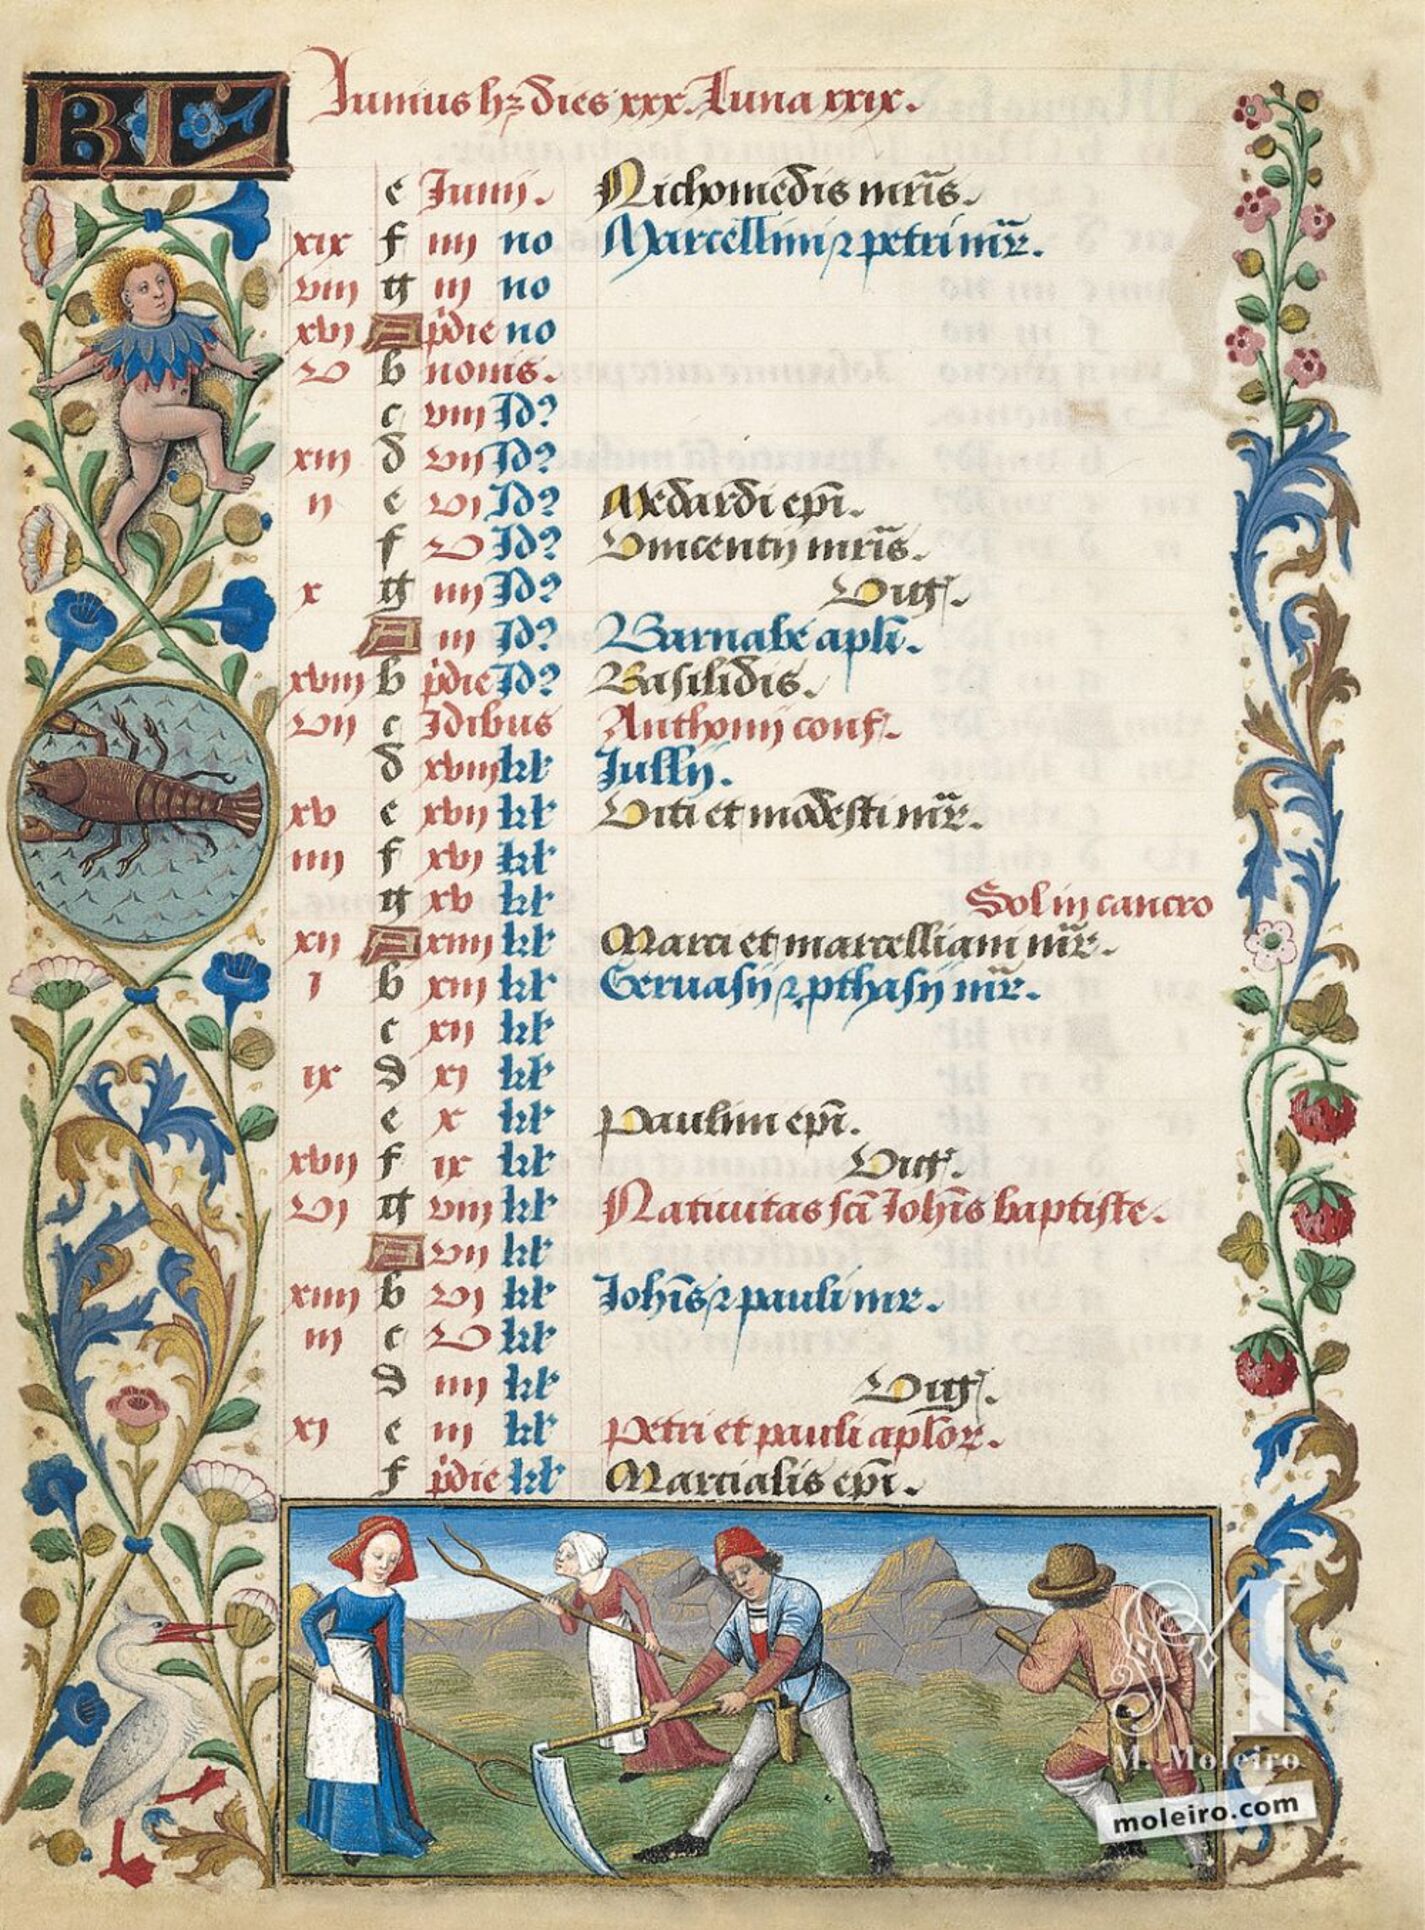 KL Iunius hz dies xxx. Luna xxix.
e Iunii. Nichomedis mris.
xix f iiii no Marcellini z petri mr.
viii g iii no
xvi A pdie no
v b nonis.
c viii Id?
xiii d vii Id?
ii e vi Id? Medardi epi.
f v Id? Vincentii mris.
x g iiii Id? Vigl.
A iii Id? Barnabe apli.
xviii b pdie Id? Basilidis.
vii c Idibus Anthonii conf.
d xviii kl Iullii.
xv e xvii kl Viti et modesti mr.
iiii f xvi kl
g xv kl Sol in cancro
xii A xiiii kl Marci et marcelliani mr.
i b xiii kl Geruasii z pthasii mr.
c xii kl
ix d xi kl
e x kl Paulini epi.
xvii f ix kl Vigl.
vi g viii kl Natiuitas sci Iohis baptiste.
A vii kl
xiiii b vi kl Iohis z pauli mr.
iii c v kl
d iiii kl Vigl.
xi e iii kl Petri et pauli aplor.
f pdie kl Marcialis epi.
M. Moleiro
moleiro.com